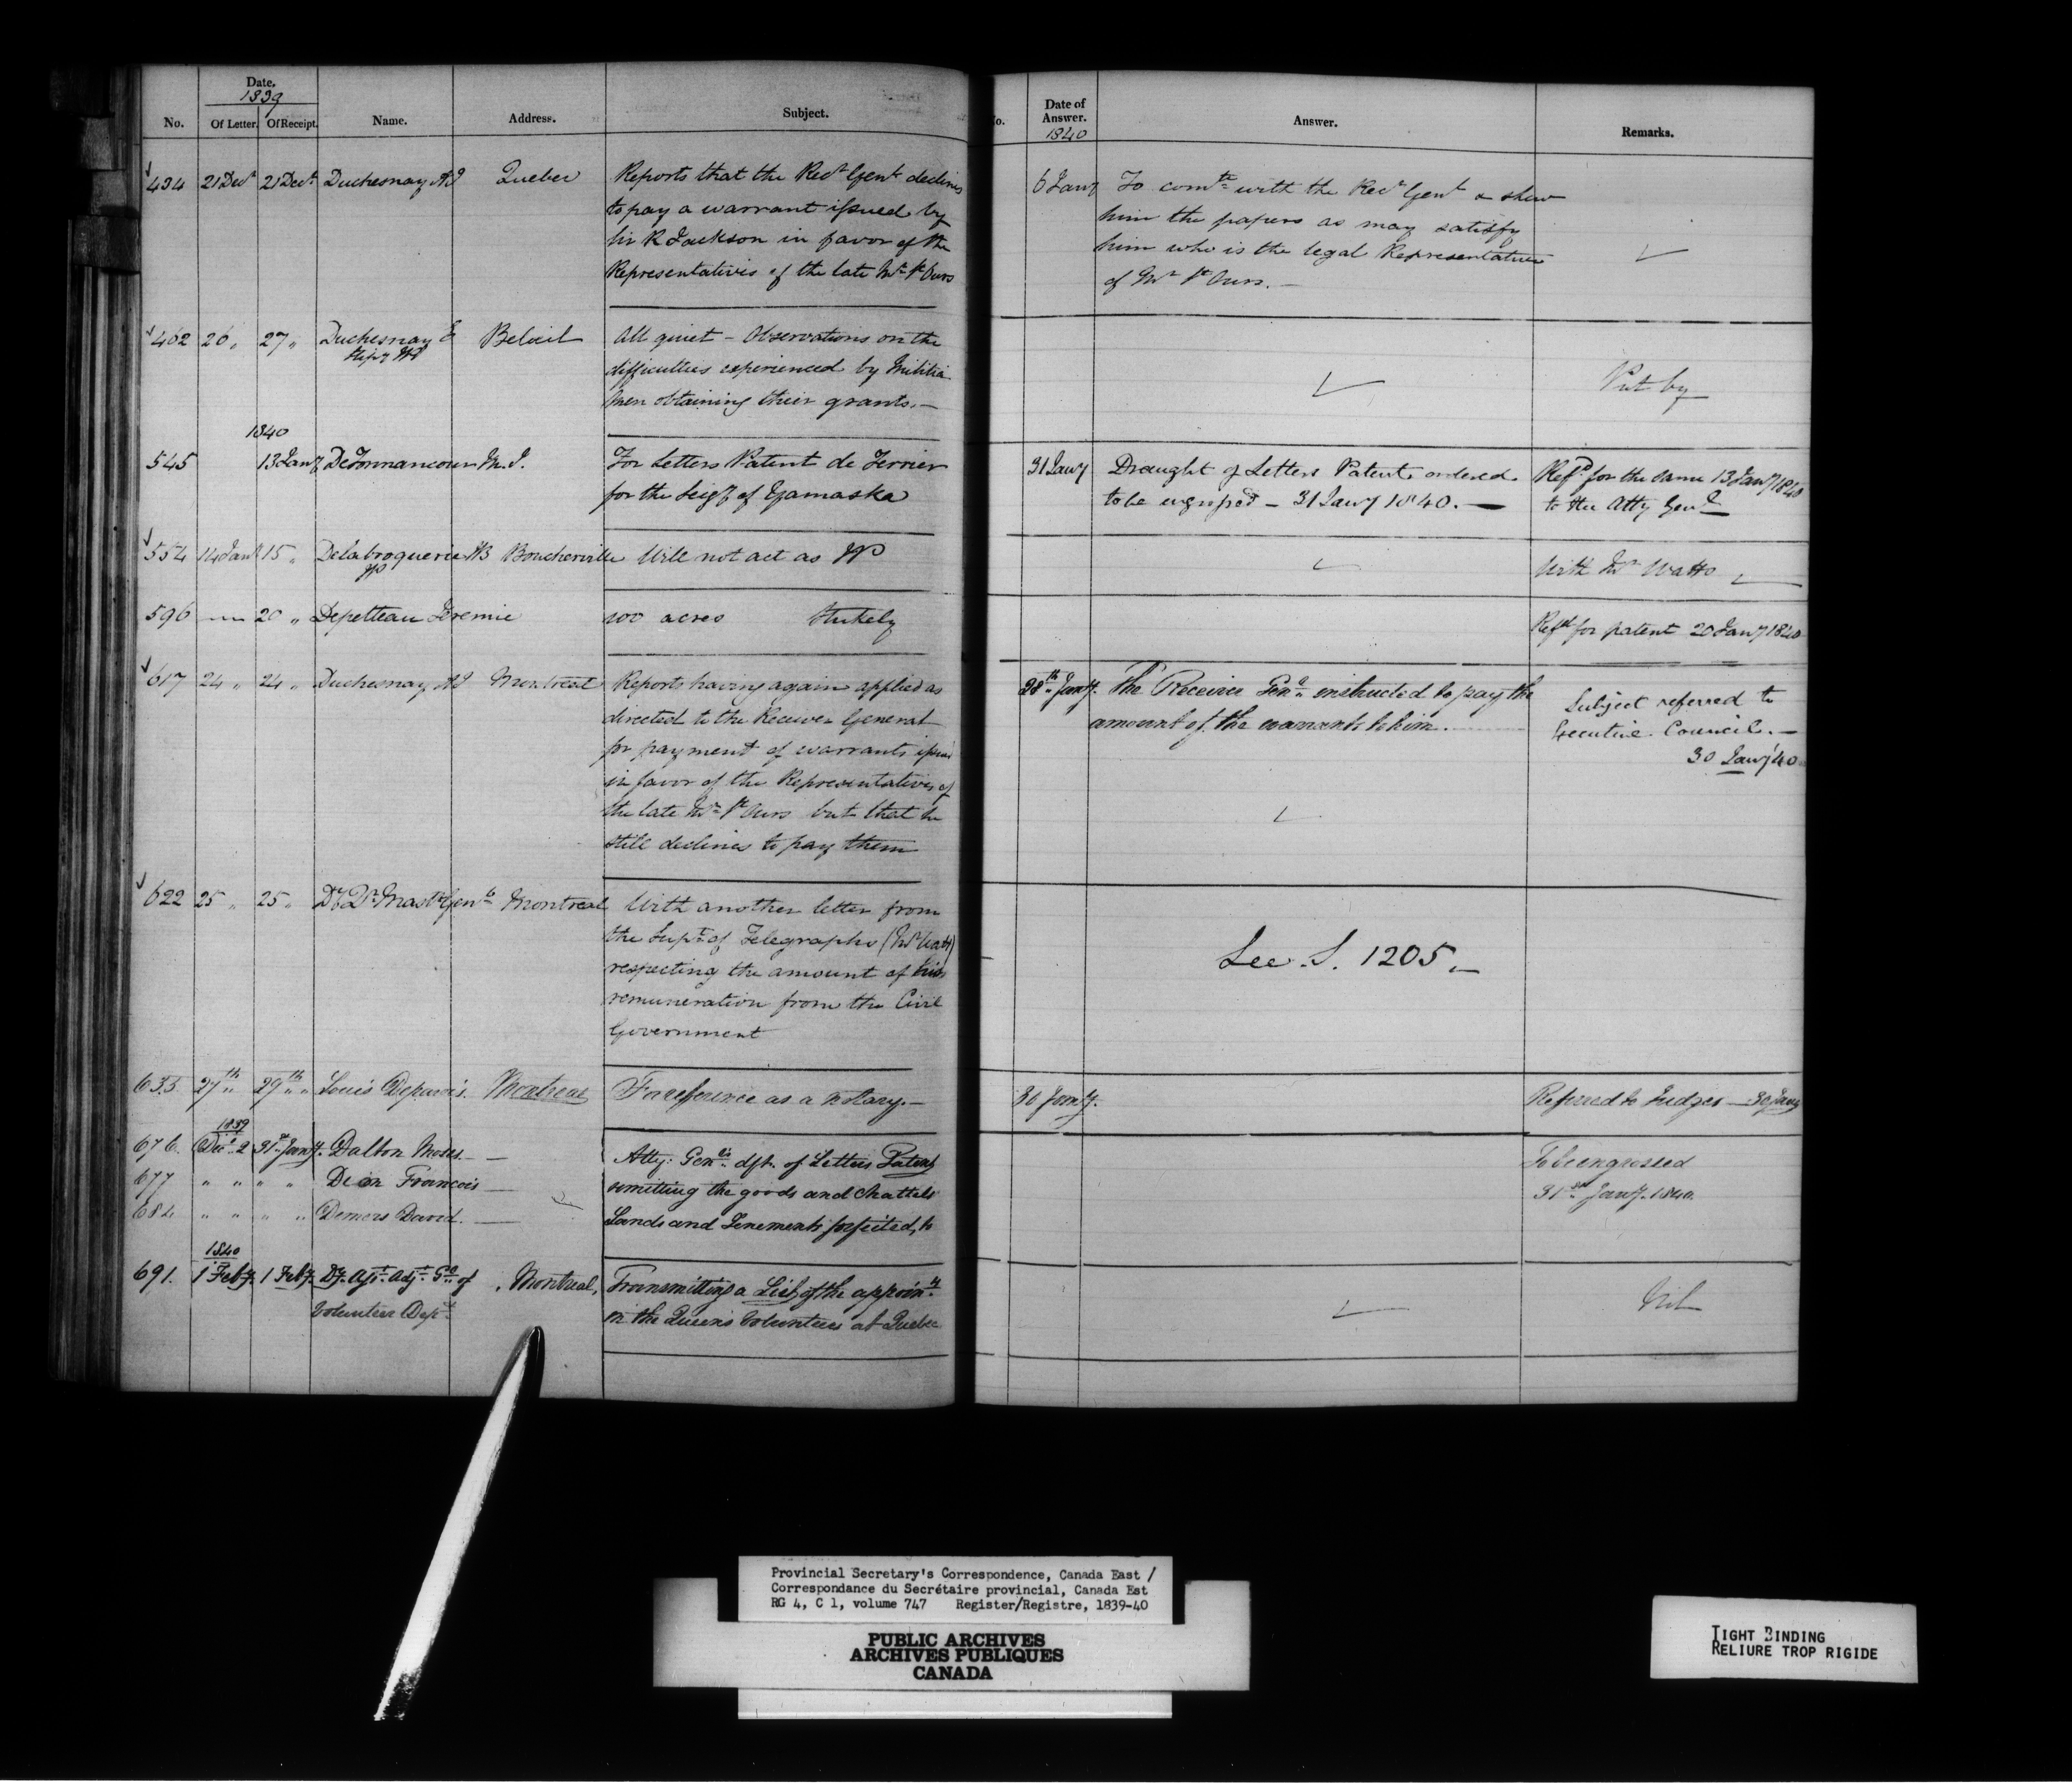 Date.
1839
No. Of Letter. Of Receipt. Name. Address. Subject.
434 21 Decr 21 Decr Duchesnay AJ Quebec Reports that the Recr Genl declines
to pay a warrant issued by
Sir R Jackson in favor of the
Representatives of the late Mr St Ours
462 26 " 27 " Duchesnay E Belœil All quiet - Observations on the
Stipy M
difficulties experienced by Militia
men obtaining their grants.—
1840
545 13 Jany DeTonnancour M. J. For Letters Patent de Terrier
for the Seigy of Yamaska
554 14 Jany 15 " Delabroquerie HB Boucherville Will not act as JP
JP
596 20 " Depelteau Jeremie 100 acres Stukely
617 24 " 24 " Duchesnay AJ Montreal Reports having again applied as
directed to the Receiver General
for payment of warrants issued
in favor of the Representatives of
the late Mr St Ours but that he
still declines to pay them
622 25 " 25 " Dy Pr Mastr Genl Montreal With another letter from
the Supt of Telegraphs (Mr Watt)
respecting the amount of his
remuneration from the Civil
Government
633 27th " 29th " Louis Montreal For reference as a Notary.—
1839
676. Decr 2 31st Jany. Dalton Moses — Atty: Genls dft. of Letters Patent
677 " " " " Dion Francois — remitting the goods and Chattels
684 " " " " Demers David. — Lands and Tenements forfeited, to
1840
691. 1 Feby. 1 Feby. Dy. Asst. Adjt. Gl of Montreal, Transmitting a List of the appoints
Volunteer Dept in the Queen's Volunteers at Quebec
o. Date of
Answer.
1840
Answer. Remarks.
6 Jany To comte with the Recr Genl & shew
him the papers as may satisfy
him who is the legal Representative
of Mr St Ours.—
Put by
31 Jany Draught of Letters Patent ordered
to be engrossed — 31 Jany 1840.—
Refd for the same 13 Jany 1840
to the Atty Genl
With Mr Watts
Refd for patent 20 Jany 1840
28th Jany. The Receiver Genl instructed to pay the
amount of the warrants to him.
Subject referred to
Executive Council.—
30 Jany '40
See S. 1205.—
30 Jany. Referred to Judges — 30 Jany
To be engrossed
31st Jany. 1840.
Nil
Provincial Secretary's Correspondence, Canada East /
Correspondance du Secrétaire provincial, Canada Est
RG 4, C 1, volume 747 Register/Registre, 1839-40
PUBLIC ARCHIVES
ARCHIVES PUBLIQUES
CANADA
TIGHT BINDING
RELIURE TROP RIGIDE